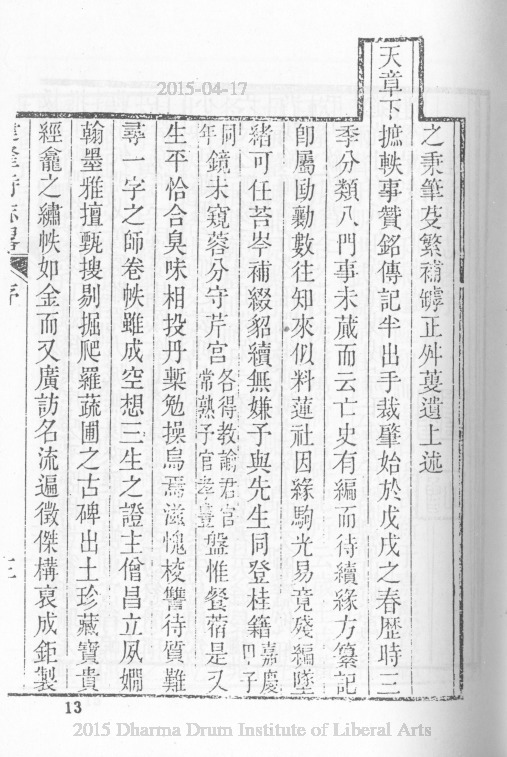 2015-04-17
之秉筆芟繁補罅正舛蒐遺上述
天章下摭軼事贊銘傳記半出手裁肇始於戊戌之春歴時三
季分類八門事未蕆而云亡史有編而待續緣方纂記
卽屬勘勷數往知來似料蓮社因緣駒光易竟殘編墜
緒可任苔岑補綴貂續無嫌予與先生同登桂籍嘉慶甲子
同年鏡未窺蓉分守芹宮各得教諭君官常熟予官孝豐盤惟餐蓿是又
生平恰合臭味相投丹槧勉操烏焉滋愧校讐待質難
尋一字之師卷帙雖成空想三生之證主僧昌立夙嫺
翰墨雅擅甄搜剔掘爬羅蔬圃之古碑出土珍藏寶貴
經龕之繡帙如金而又廣訪名流遍徵傑構裒成鉅製
序
三
13
2015 Dharma Drum Institute of Liberal Arts